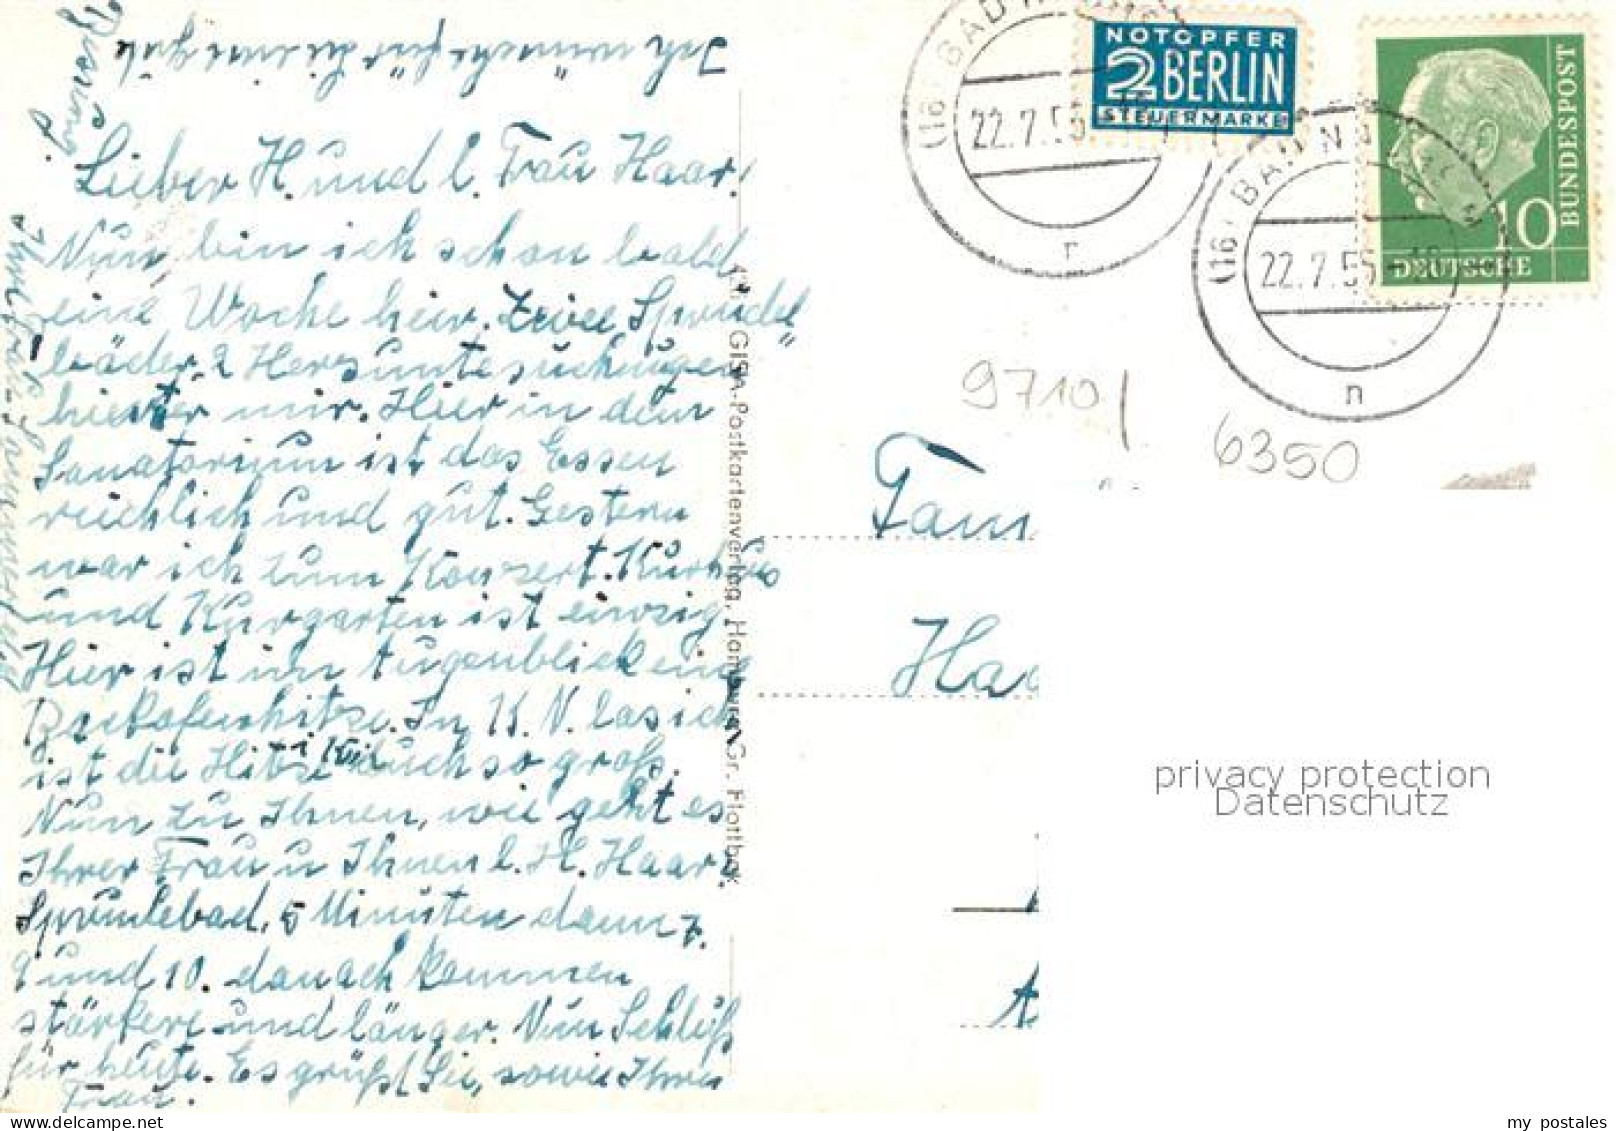 Ich wünsche für die eine gute
Besserung
Lieber H. und l. Frau Haar!
Nun bin ich schon bald
eine Woche hier. Zwei Sprudel
bäder 2 Herzuntersuchungen
hinter mir. Hier in dem
Sanatorium ist das Essen
reichlich und gut. Gestern
war ich zum Konzert. Kurhs
und Kurgarten ist einzig
Hier ist im Augenblick eine
Backofenhitze. In K. N. las ich
ist die Hitze auch so groß.
Nun zu Ihnen, wie geht es
Ihrer Frau u Ihnen l. H. Haar.
Sprudelbad. 5 Minuten dann 7.
9 und 10. danach kommen
stärkere und länger. Nun Schluß
für heute. Es grüßt Sie, sowie Ihre
Frau.
Ihre Frau
GISA-Postkartenverlag, Hamburg-Gr. Flottbek
(16) BAD NAUHEIM
22.7.55
r
NOTOPFER
2 BERLIN
STEUERMARKE
(16) BAD NAUHEIM
22.7.55
n
10
DEUTSCHE
BUNDESPOST
9710/
6350
Fam
Haa
privacy protection
Datenschutz
my postales